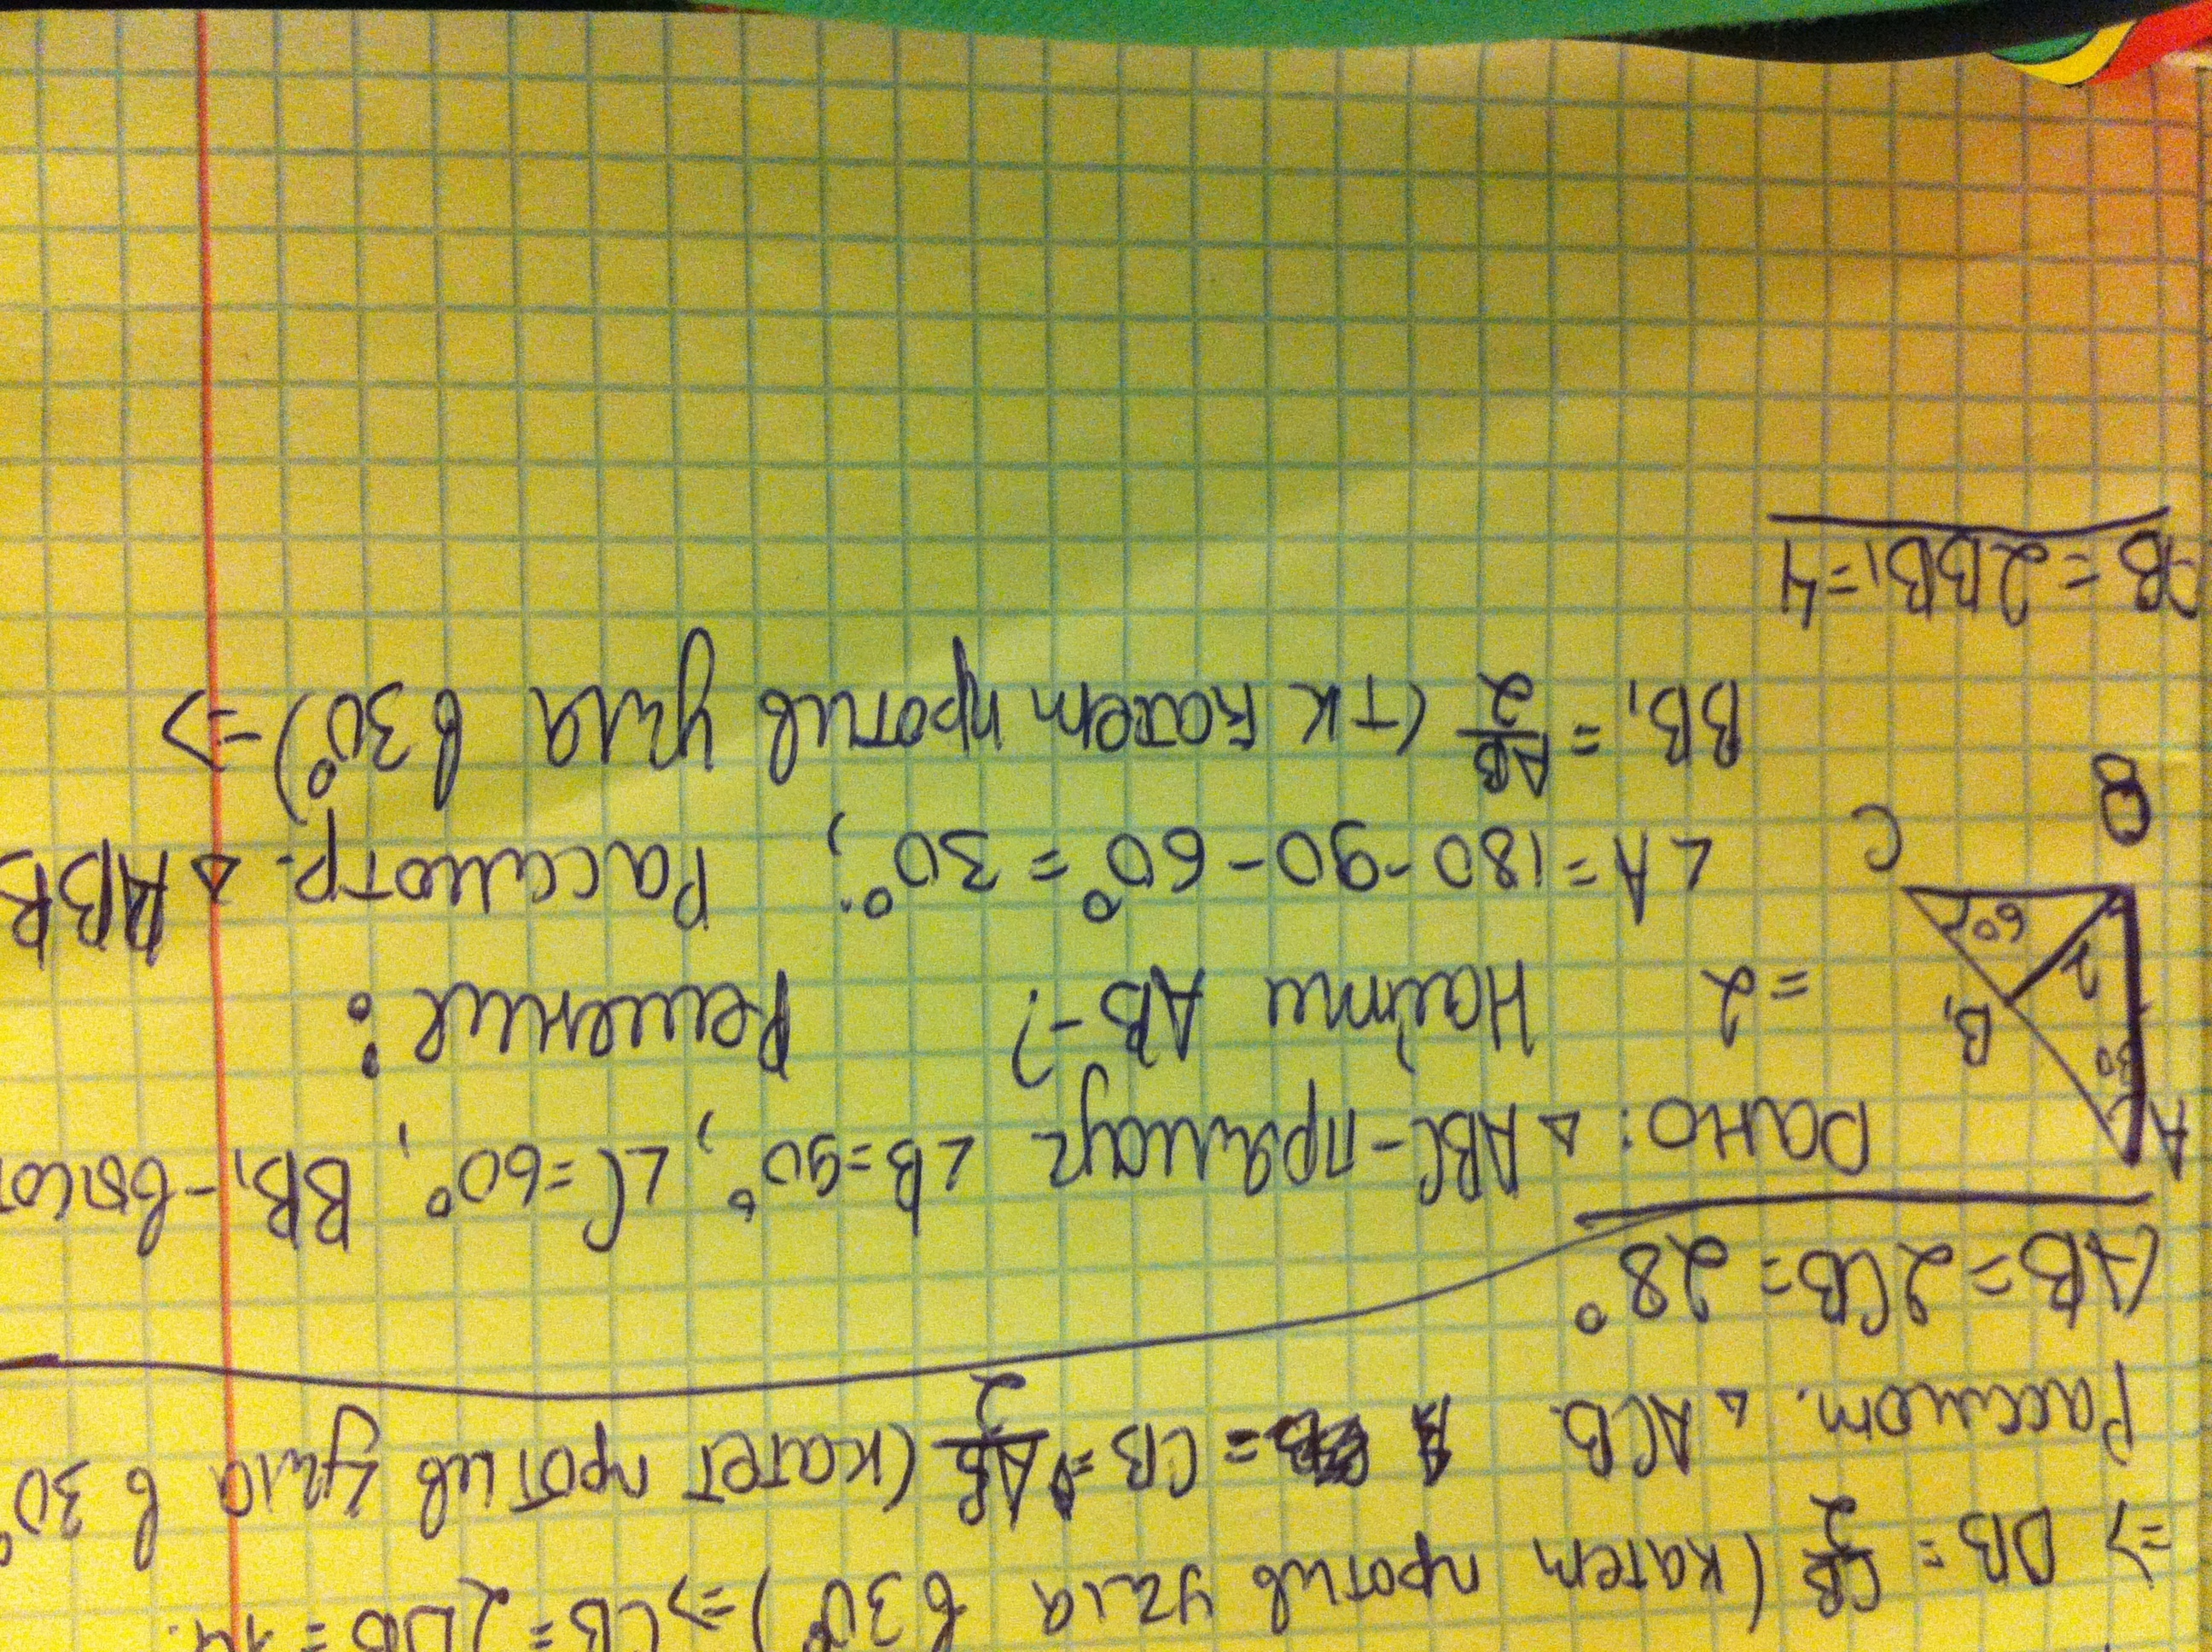 => DB = CB/2 (катет против угла в 30°) => CB = 2DB = 14.
Рассмот. △ ACB. = CB = AB/2 (катет против угла в 30°
(AB = 2CB = 28°
Дано: △ ABC - прямоуг ∠B=90°, ∠C=60°, BB₁ - высот
= 2 Найти AB-? Решение:
∠A = 180-90-60° = 30°; Рассмотр. △ ABB
BB₁ = AB/2 (тк катет против угла в 30°) =>
AB = 2BB₁ = 4
A
30
B₁
2
60
C
B